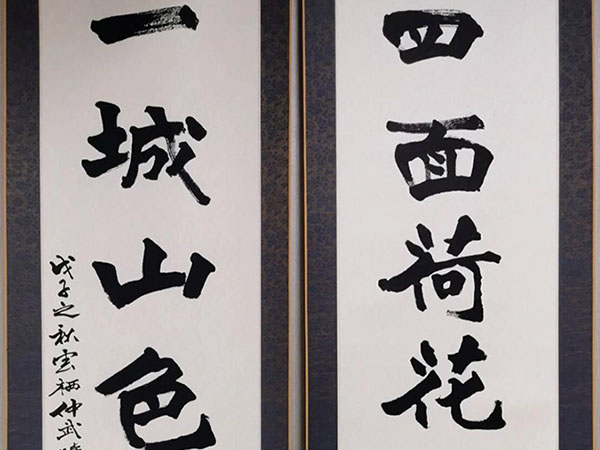 四面荷花
一城山色
戊子之秋云栖仲武